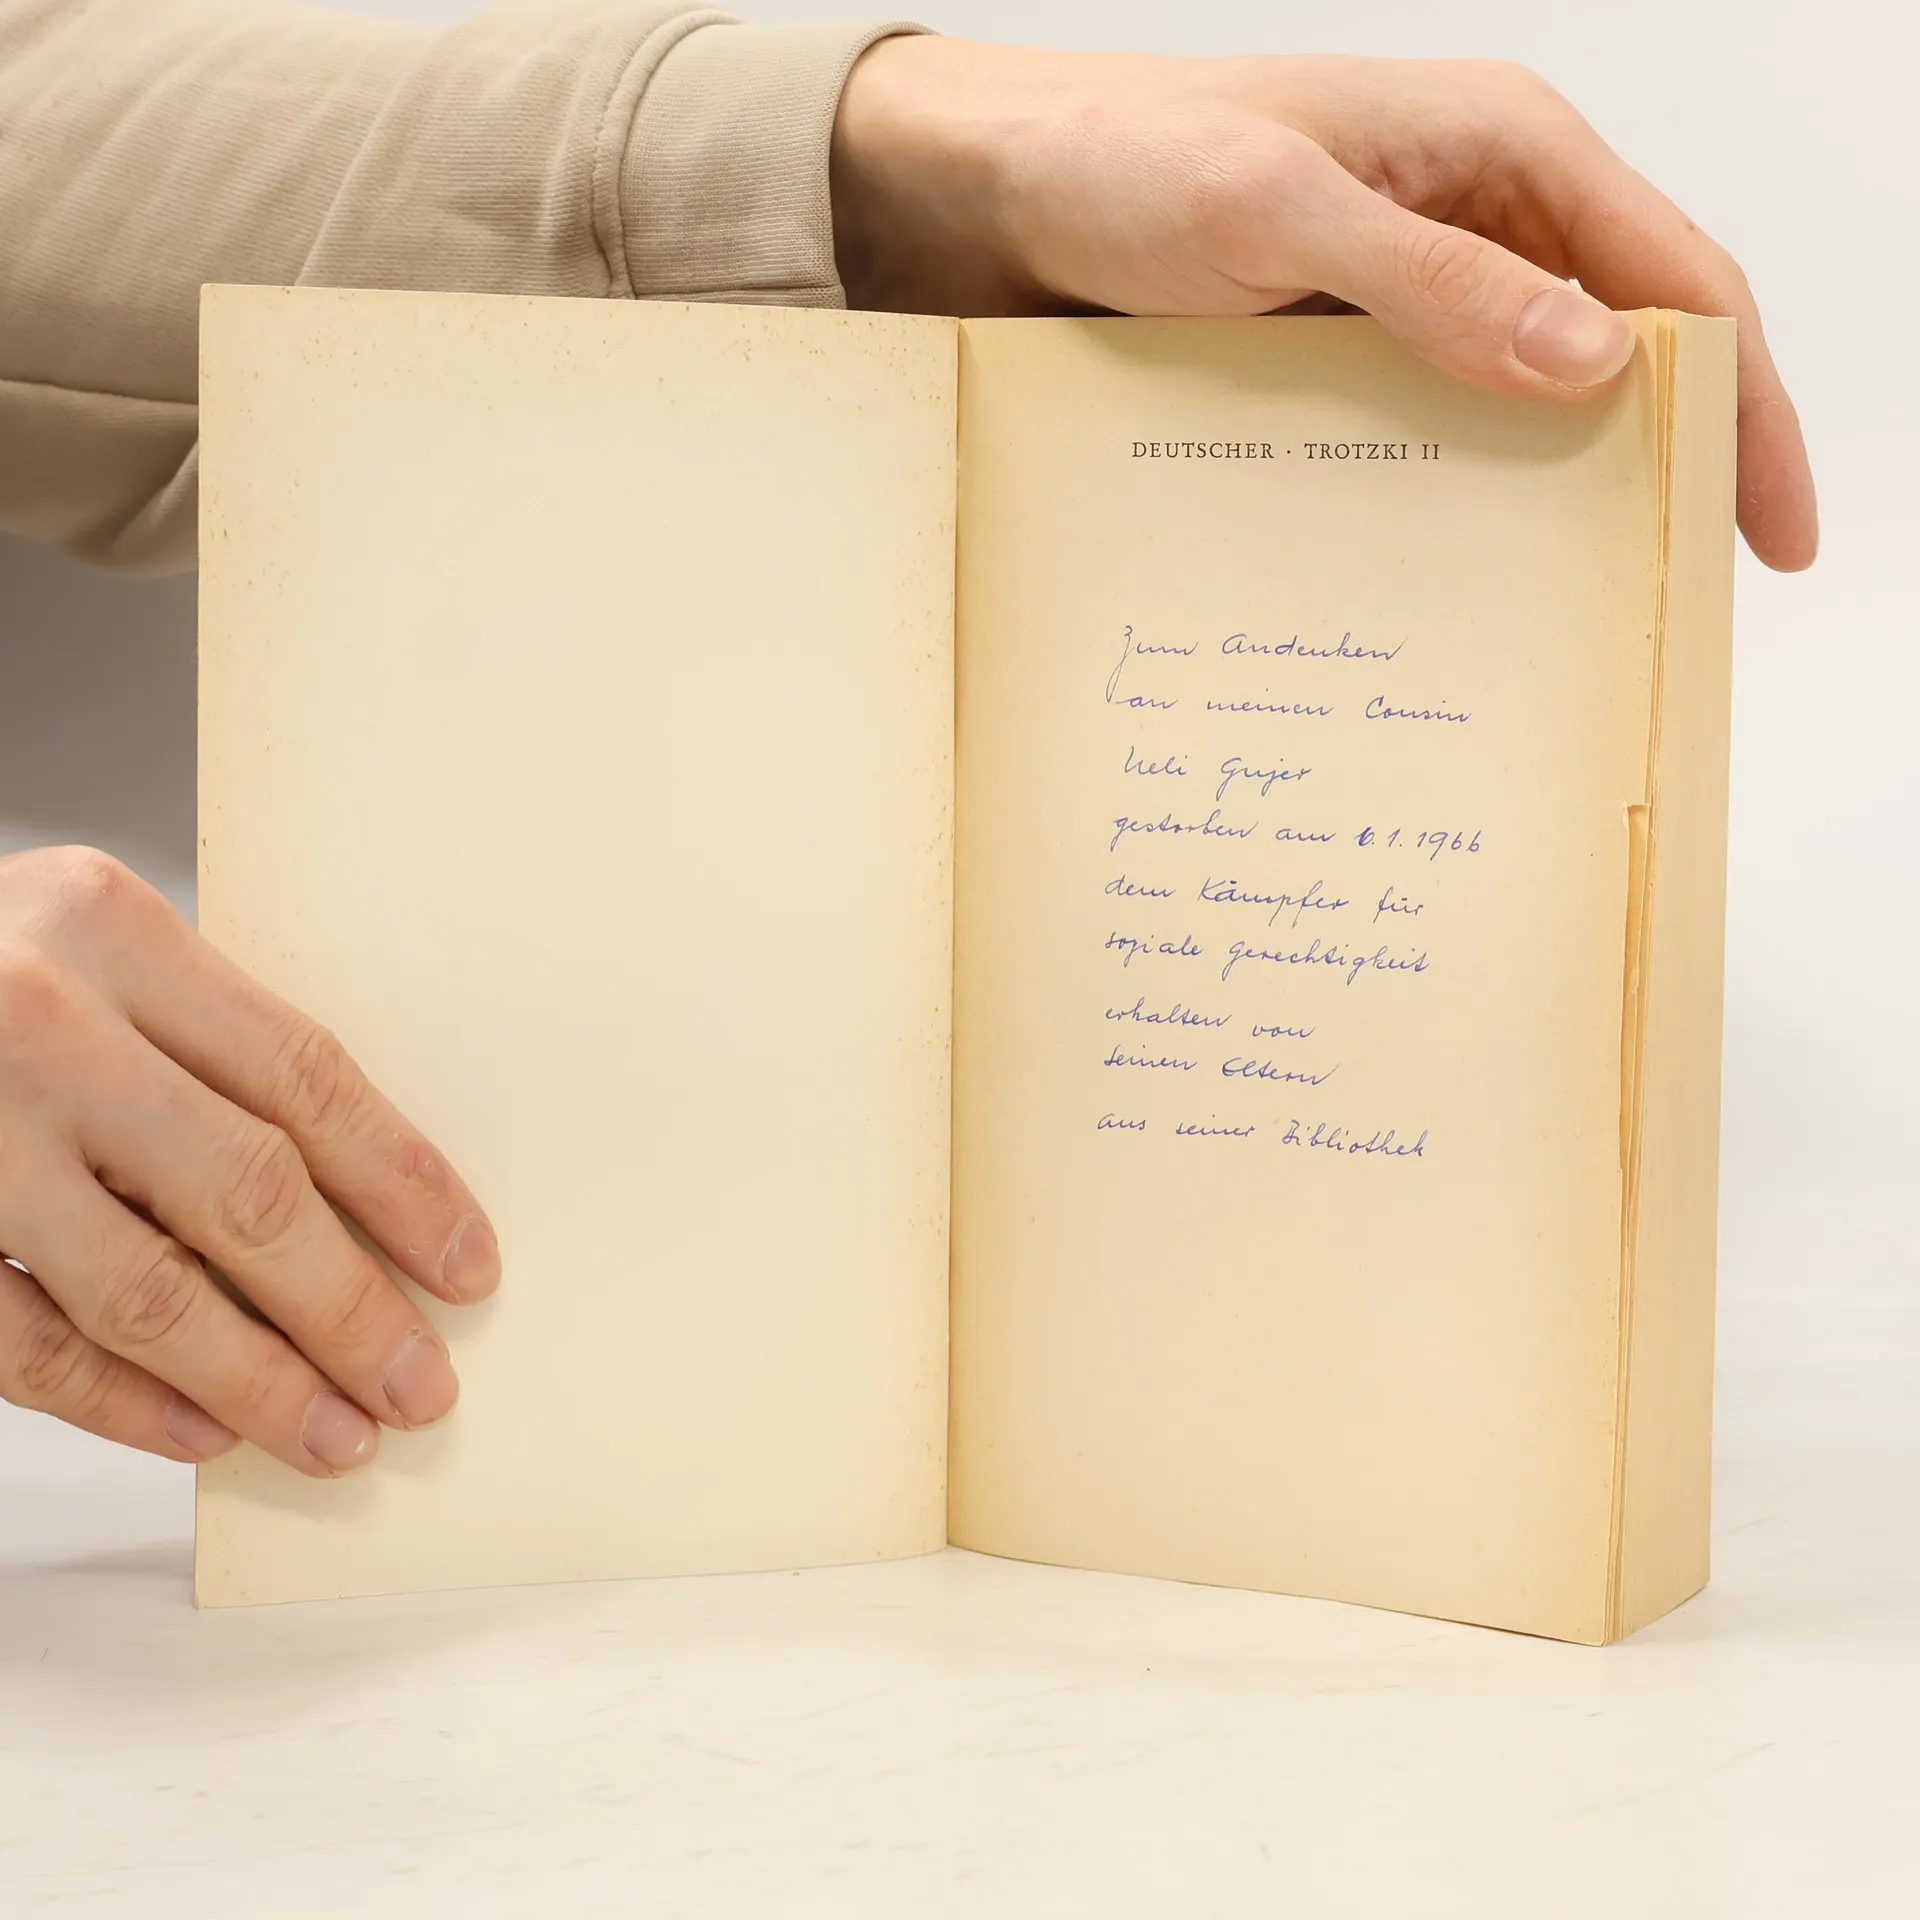 DEUTSCHER · TROTZKI II
Zum Andenken
an meinen Cousin
Ueli Gujer
gestorben am 6.1.1966
dem Kämpfer für
soziale Gerechtigkeit
erhalten von
seinen Eltern
aus seiner Bibliothek